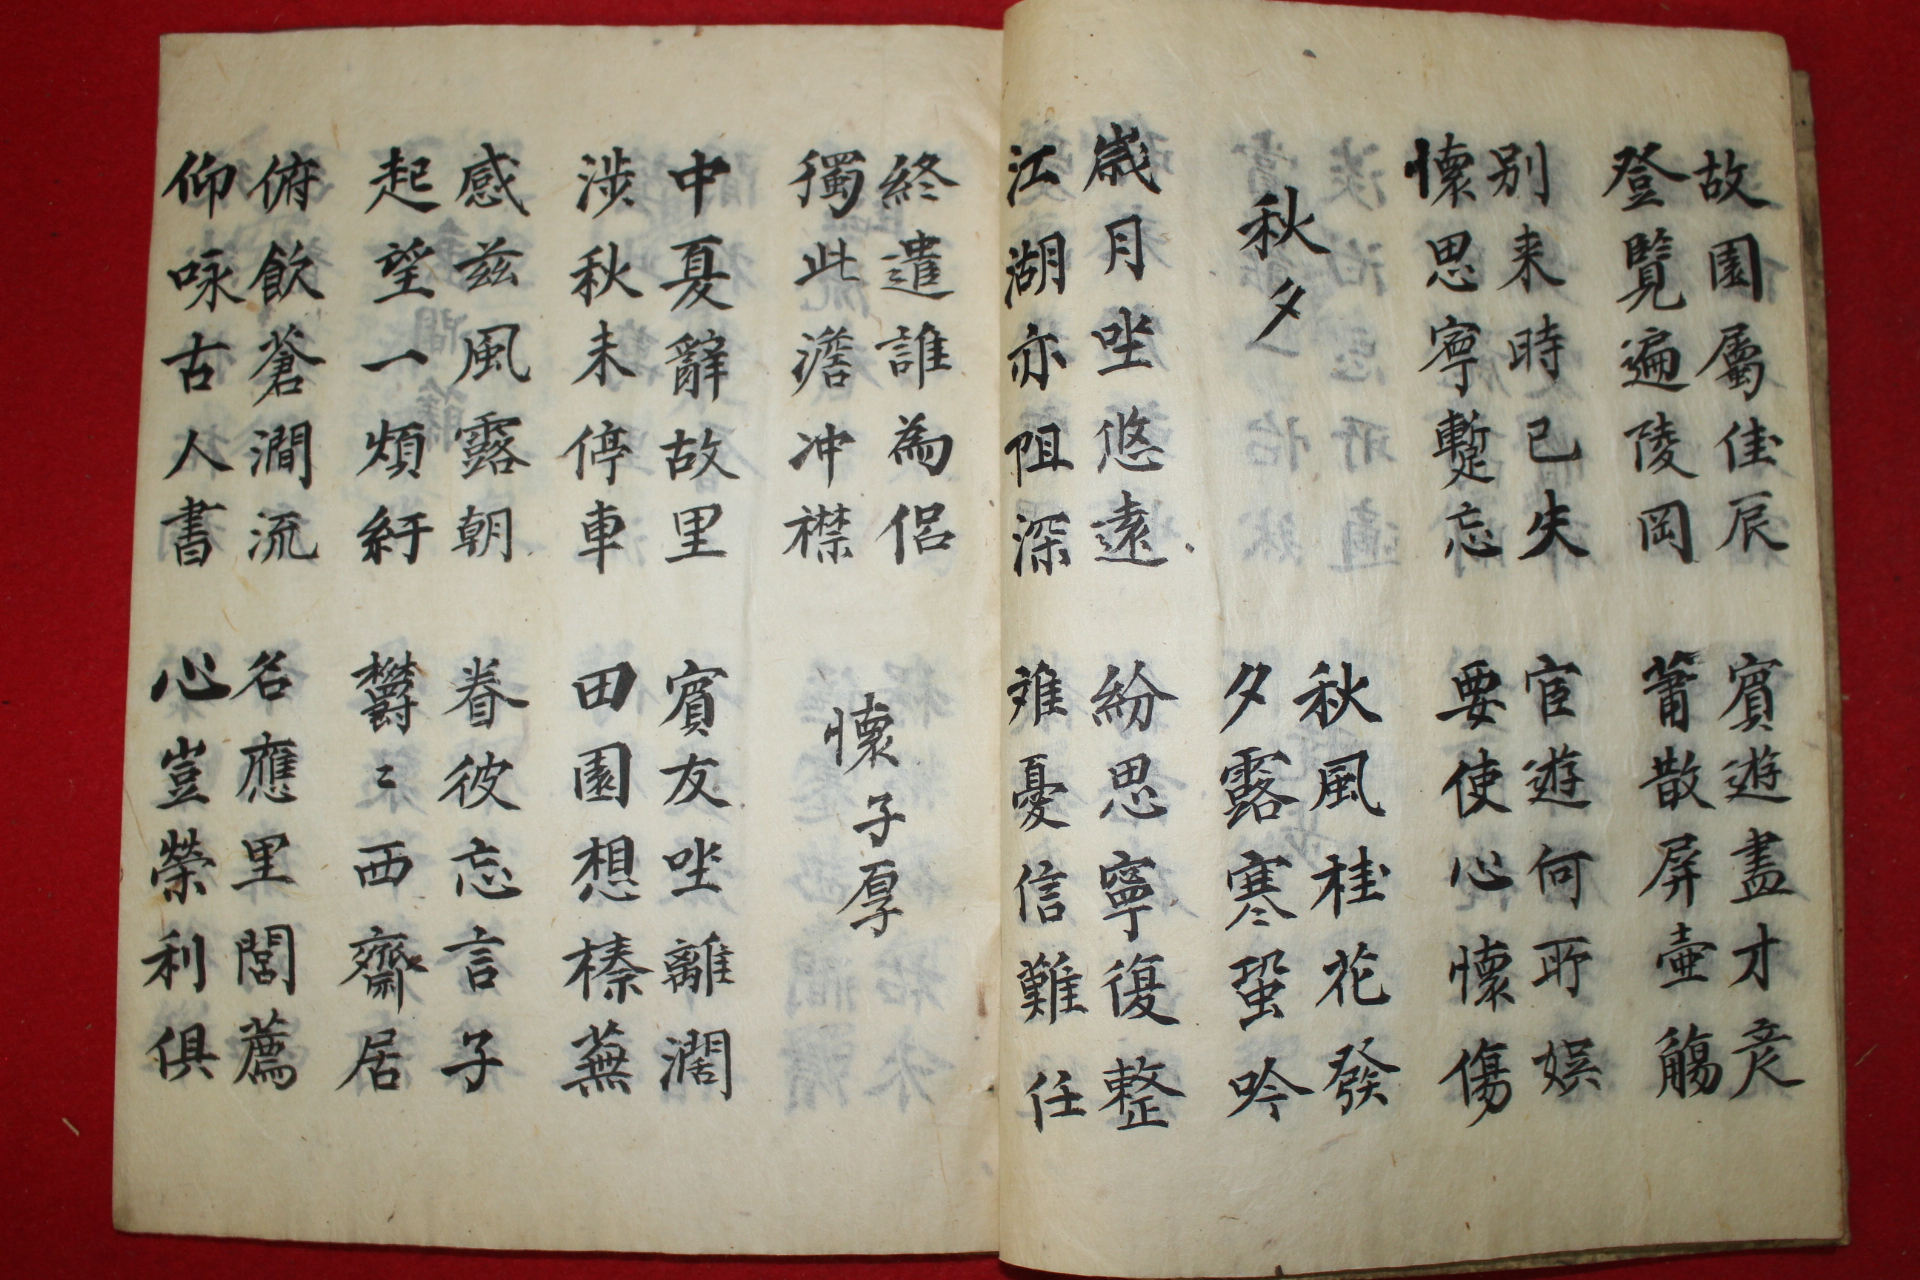 故園屬佳辰
登覽遍陵岡
賓遊盡才彦
蕭散屏壺觴
別来時已失
懷思寧蹔忘
宦遊何所娯
要使心懷傷
秋夕
秋風桂花發
夕露寒蛩吟
歲月坐悠遠
江湖亦阻深
紛思寧復整
離憂信難任
終遣誰為侶
獨此澹冲襟
懷子厚
中夏辭故里
涉秋未停車
賓友坐離濶
田園想榛蕪
感茲風露朝
起望一煩紆
眷彼忘言子
欝〻西齋居
俯飲蒼澗流
仰咏古人書
名應里閭薦
心豈榮利俱